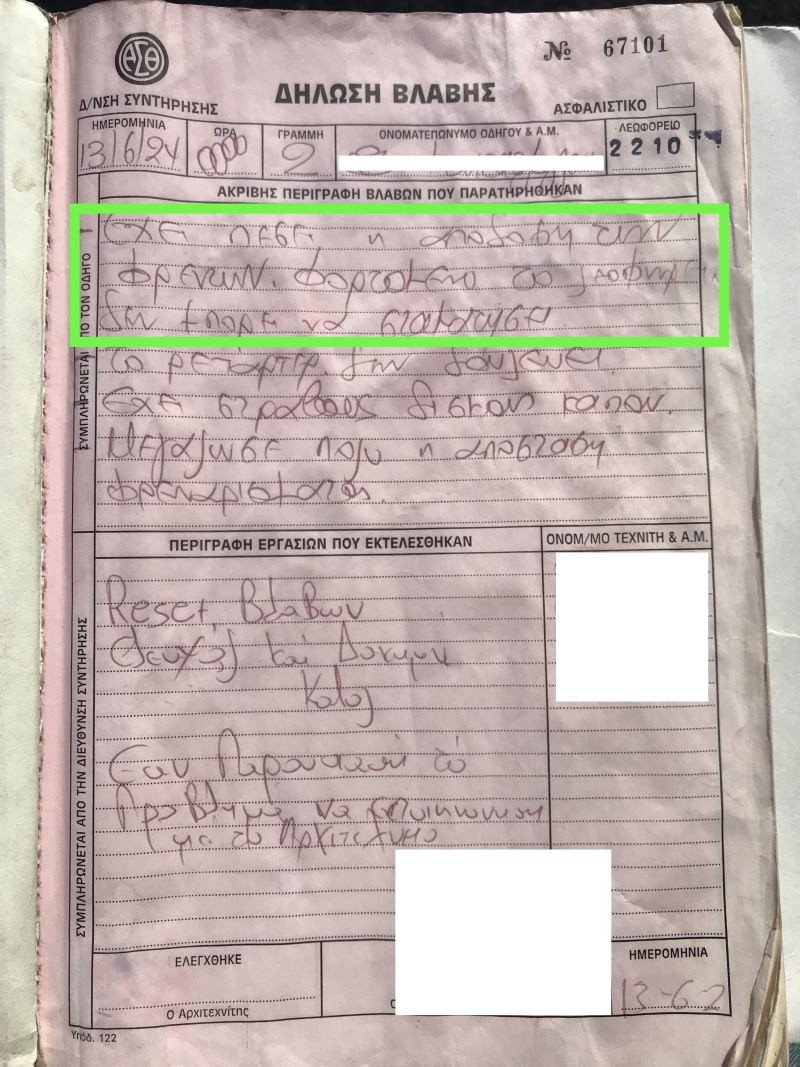 ΑΣΘ
Nº 67101
Δ/ΝΣΗ ΣΥΝΤΗΡΗΣΗΣ
ΔΗΛΩΣΗ ΒΛΑΒΗΣ
ΑΣΦΑΛΙΣΤΙΚΟ
ΗΜΕΡΟΜΗΝΙΑ ΩΡΑ ΓΡΑΜΜΗ ΟΝΟΜΑΤΕΠΩΝΥΜΟ ΟΔΗΓΟΥ & Α.Μ. ΛΕΩΦΟΡΕΙΟ
13/6/24 2 2210
ΑΚΡΙΒΗΣ ΠΕΡΙΓΡΑΦΗ ΒΛΑΒΩΝ ΠΟΥ ΠΑΡΑΤΗΡΗΘΗΚΑΝ
ΣΥΜΠΛΗΡΩΝΕΤΑΙ ΑΠΟ ΤΟΝ ΟΔΗΓΟ
Εχει πεσει η αποδοση των
φρενων. Φορτωμενο το
δεν μπορει να σταματησει
το ρεταρτερ δεν δουλευει.
Εχει στραβους δισκους καπου.
Μεγαλωσε πολυ η αποσταση
φρεναρισματος.
ΠΕΡΙΓΡΑΦΗ ΕΡΓΑΣΙΩΝ ΠΟΥ ΕΚΤΕΛΕΣΘΗΚΑΝ
ΟΝΟΜ/ΜΟ ΤΕΧΝΙΤΗ & Α.Μ.
ΣΥΜΠΛΗΡΩΝΕΤΑΙ ΑΠΟ ΤΗΝ ΔΙΕΥΘΥΝΣΗ ΣΥΝΤΗΡΗΣΗΣ
Reset Βλαβων
και
Εαν Παρουσιασει το
Προβλημα να επικοινωνηση
με το Αρχιτεχνιτη
ΕΛΕΓΧΘΗΚΕ
ΗΜΕΡΟΜΗΝΙΑ
13-6-2
Ο Αρχιτεχνίτης
Υπόδ. 122